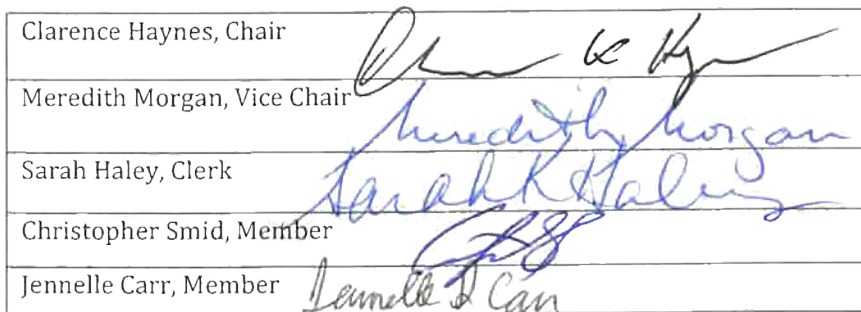 Clarence Haynes, Chair
Meredith Morgan, Vice Chair Meredith Morgan
Sarah Haley, Clerk Sarah K Haley
Christopher Smid, Member
Jennelle Carr, Member Jennelle D Carr